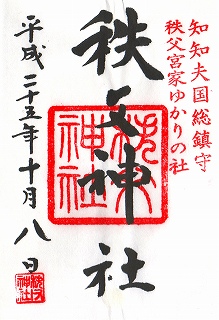 知知夫国総鎮守
秩父宮家ゆかりの社
秩父神社
秩父神社
平成二十五年十月八日
秩父神社